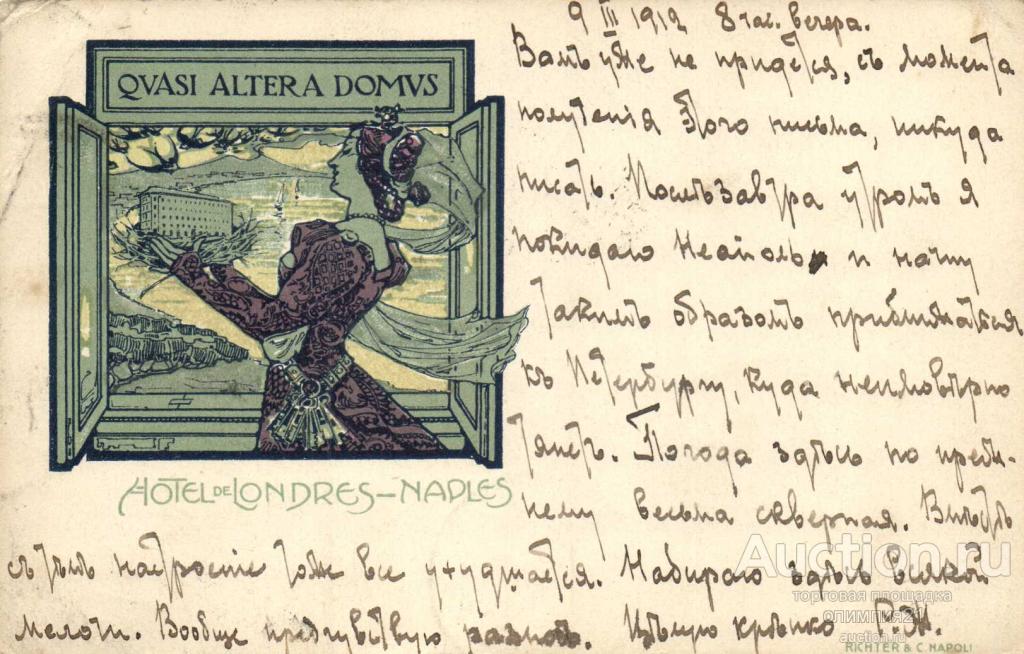 9 III 1912 8 час. вечера.
Вамъ уже не придется, съ момента
полученія этого письма, никуда
писать. Послѣзавтра утромъ я
покидаю Неаполь и начну
такимъ образомъ приближаться
къ Петербургу, куда неимовѣрно
тянетъ. Погода здѣсь по преж-
нему весьма скверная. Вмѣстѣ
съ тѣмъ настроеніе тоже все ухудшается. Набираю здѣсь всякой
мелочи. Вообще предчувствую разное. Цѣлую крѣпко
QVASI ALTERA DOMVS
HOTEL DE LONDRES–NAPLES
RICHTER & C. NAPOLI
Auction.ru
торговая площадка
ОЛИМПИЯ2
auction.ru